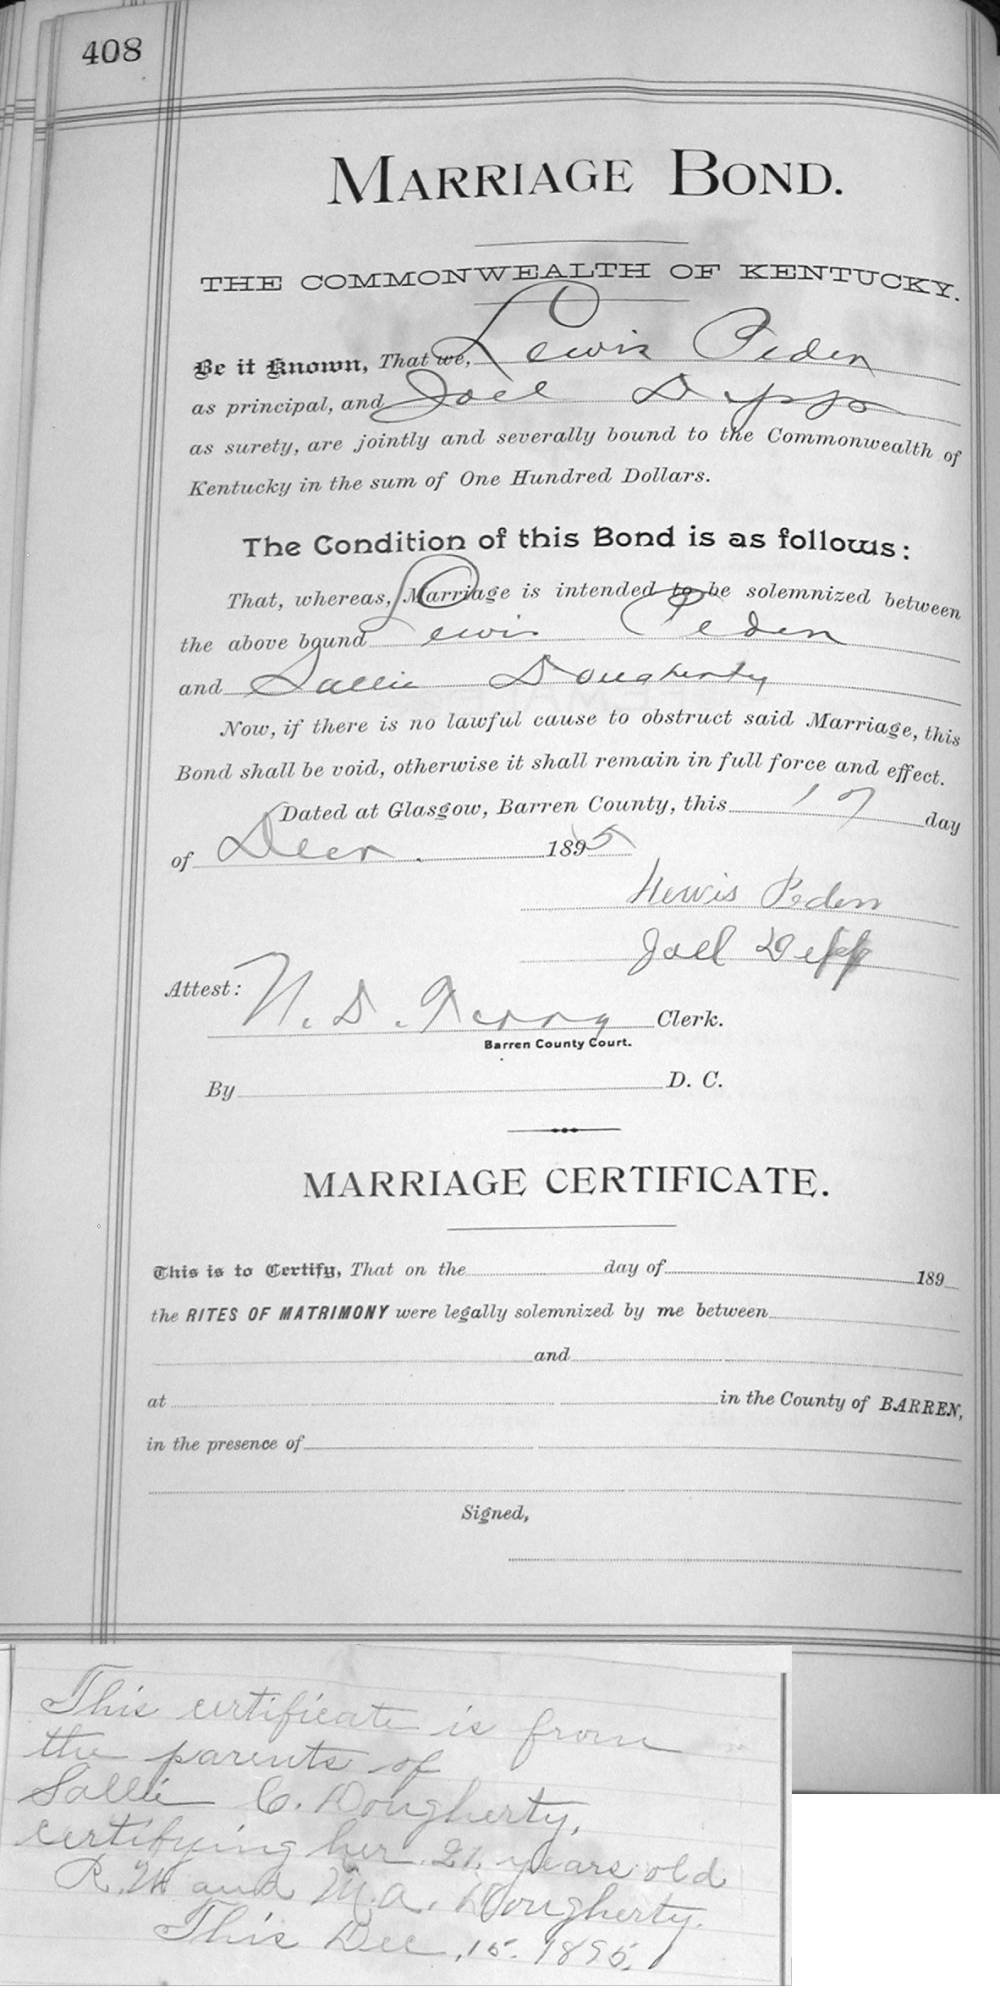 408
MARRIAGE BOND.
THE COMMONWEALTH OF KENTUCKY.
Be it Known, That we, Lewis Peden
as principal, and Joel Depp
as surety, are jointly and severally bound to the Commonwealth of
Kentucky in the sum of One Hundred Dollars.
The Condition of this Bond is as follows:
That, whereas, Marriage is intended to be solemnized between
the above bound Lewis Peden
and Sallie Dougherty
Now, if there is no lawful cause to obstruct said Marriage, this
Bond shall be void, otherwise it shall remain in full force and effect.
Dated at Glasgow, Barren County, this 17 day
of Decr. 1895
Lewis Peden
Joel Depp
Attest: N. D. Terry Clerk.
Barren County Court.
By D. C.
MARRIAGE CERTIFICATE.
This is to Certify, That on the day of 189
the RITES OF MATRIMONY were legally solemnized by me between
and
at in the County of BARREN,
in the presence of
Signed,
This certificate is from
the parents of
Sallie C. Dougherty,
certifying her 21, years old
R.W. and M.A. Dougherty.
This Dec, 15. 1895.